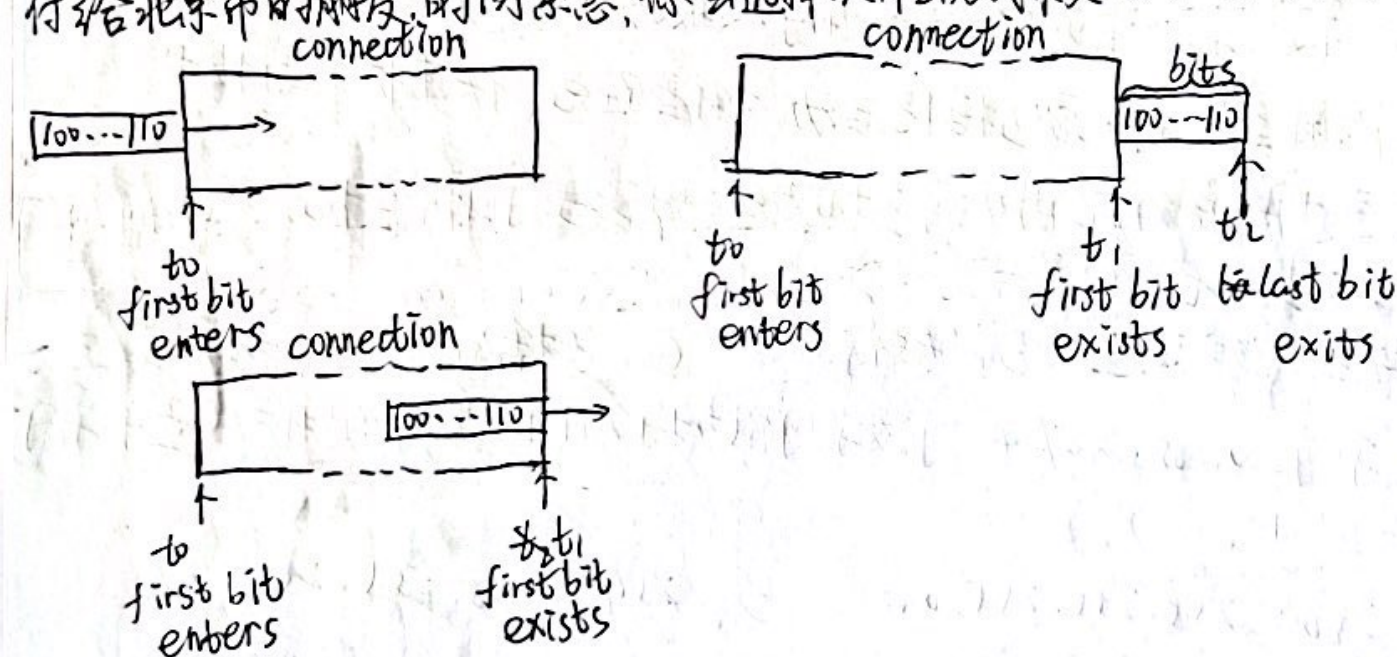 给北京市的朋友,时间紧急,你会选择
connection
100...110
to
first bit
enters
connection
bits
100--~110
to
first bit
enters
t1
first bit
exists
t2
last bit
exits
connection
100...110
to
first bit
enters
t1
first bit
exists